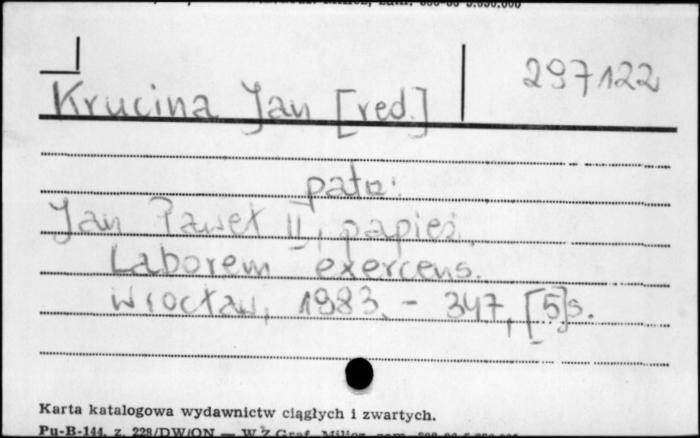 297122
Krucina Jan [red.]
patrz:
Jan Paweł II, papież.
Laborem exercens.
Wrocław, 1983. - 347, [5]s.
Karta katalogowa wydawnictw ciągłych i zwartych.
Pu-B-144, z. 228/DW/ON — W.Z.Graf.